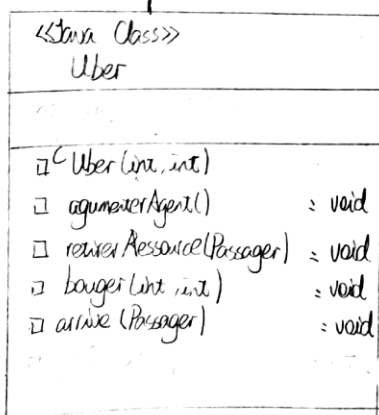 <<Java Class>>
Uber
C Uber(int, int)
agumenterAgent() : void
retirerRessource(Passager) : void
bouger(int, int) : void
arrive(Passager) : void